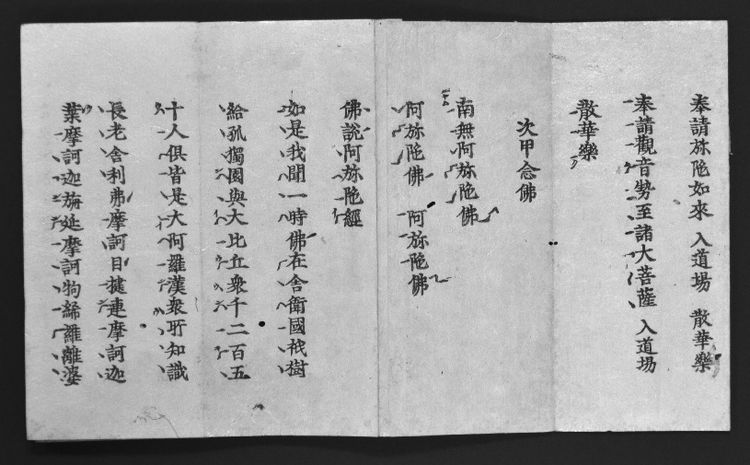 奉請弥陁如來 入道場 散華樂
奉請觀音勢至諸大菩薩 入道場
散華樂
次甲念佛
南無阿弥陁佛
阿弥陁佛 阿弥陁佛
佛說阿弥陁經
如是我聞一時佛在舍衛國祇樹
給孤獨園與大比丘衆千二百五
十人俱皆是大阿羅漢衆所知識
長老舎利弗摩訶目揵連摩訶迦
葉摩訶迦旃延摩訶狗絺羅離婆